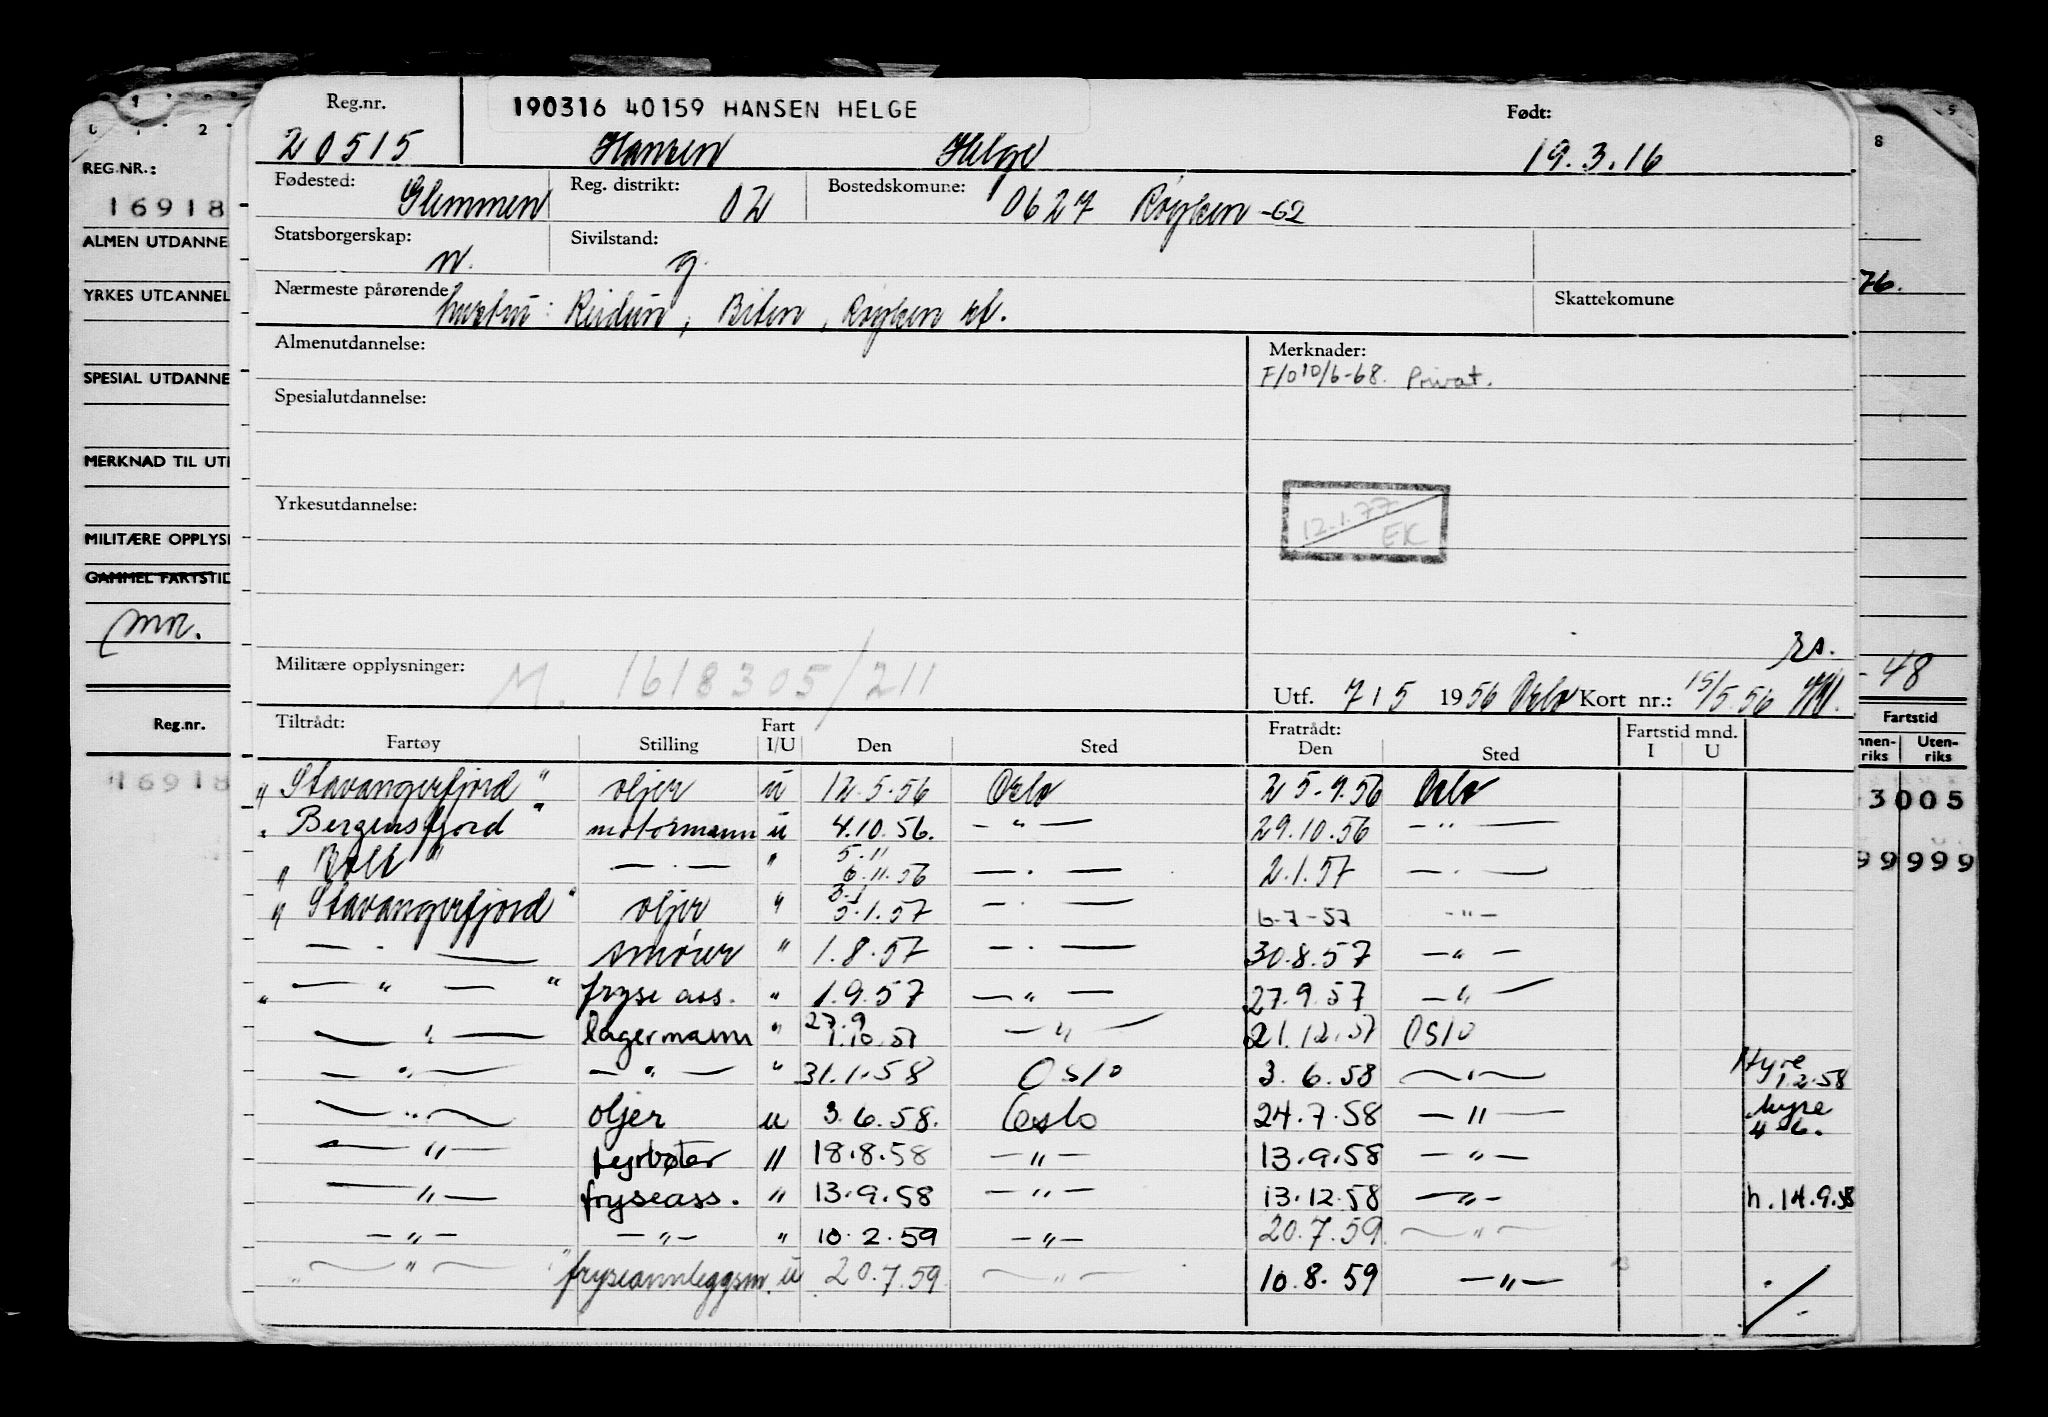 Reg.nr.
190316 40159 HANSEN HELGE
Født:
20515 Hansen Helge 19.3.16
Fødested: Glemmen Reg. distrikt: 02 Bostedskomune: 0627 Røyken -62
Statsborgerskap: n. Sivilstand: g.
Nærmeste pårørende hustru: Reidun, Røyken
Skattekomune
Almenutdannelse:
Merknader:
F/O 10/6-68. Privat.
Spesialutdannelse:
Yrkesutdannelse:
12.1.77
EK
Militære opplysninger: M. 1618305/211
Utf. 7/5 1956 Oslo Kort nr.: 15/5.56
Tiltrådt: Fart Fratrådt: Fartstid mnd.
Fartøy Stilling I/U Den Sted Den Sted I U
"Stavangerfjord" oljer u 12.5.56 Oslo 25.9.56 Oslo
"Bergensfjord" motormann u 4.10.56. — " — 29.10.56 — " —
— . — " 5.11 6.11.56 — . — 2.1.57 — . —
"Stavangerfjord" oljer " 3.1 5.1.57 — . — 6-7-57 — " —
— . — smører " 1.8.57 — . — 30.8.57 — " —
" — " — " fryse ass. " 1.9.57 — " — 27.9.57 — " —
— " — lagermann " 27.9 1.10.57 — " — 21.12.57 Oslo
— " — — " — " 31.1.58 Oslo 3.6.58 — " — Hyre 1.2.58
— " — oljer u 3.6.58. Oslo 24.7.58 — " — hyre 4.6.
— " — fyrbøter " 18.8.58 — " — 13.9.58 — " —
— " — fryseass. " 13.9.58 — " — 13.12.58 — " — h.14.9.58
— " — — " — " 10.2.59 — " — 20.7.59 — " —
" — " — " fryseanleggsm. u 20.7.59 — " — 10.8.59 — " —
REG.NR.:
16918
ALMEN UTDANNE
YRKES UTDANNEL
SPESIAL UTDANNE
MERKNAD TIL UT
MILITÆRE OPPLYS
GAMMEL FARTSTID
Reg.nr.
16918
8
76.
-48
Fartstid
nnen-riks Uten-riks
3005
99999